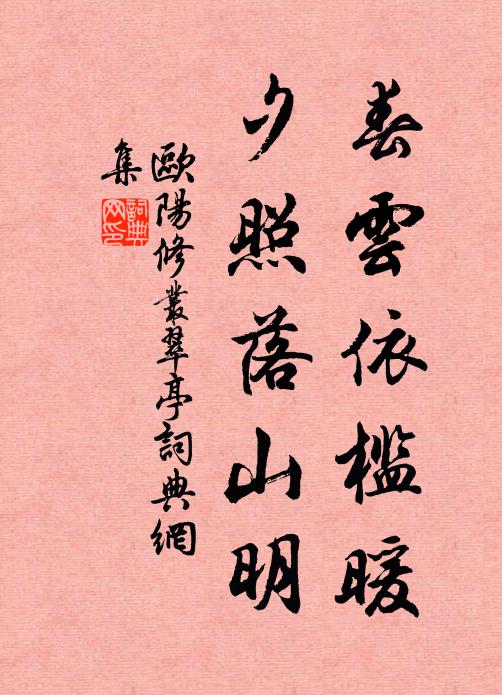 春雲依檻暖
夕照落山明
歐陽修叢翠亭詞典網
集
詞典
网印